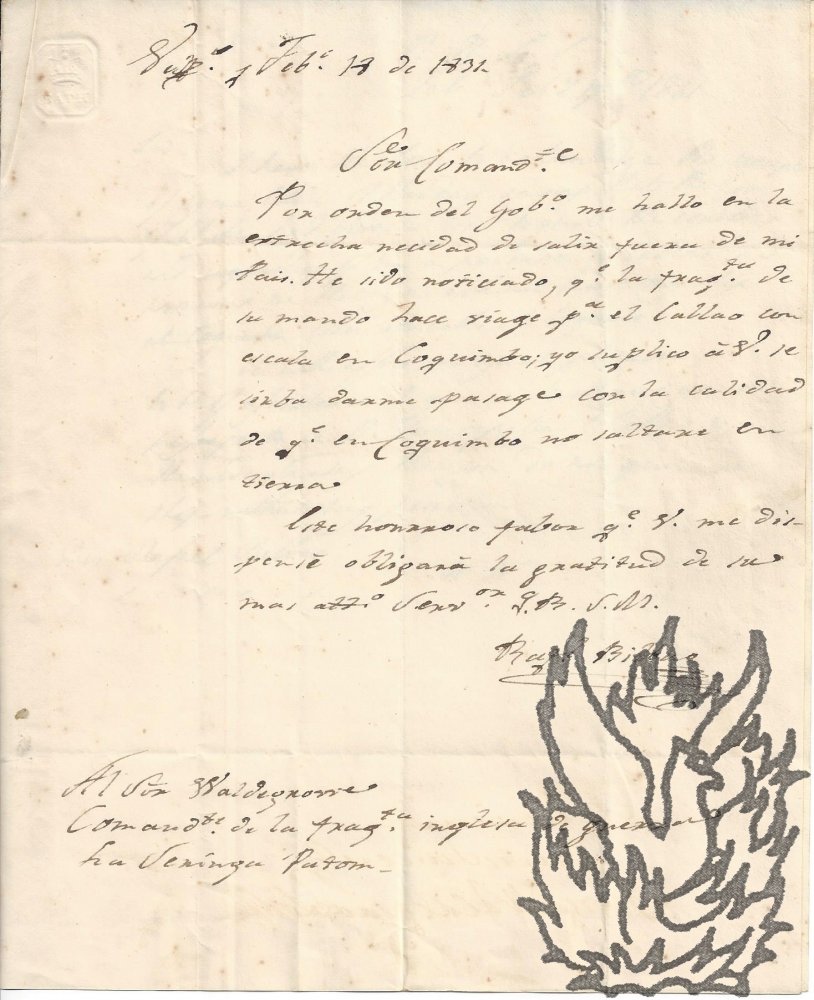 Valp.o y Feb.o 18 de 1831.
S.or Comand.te
Por orden del Gob.o me hallo en la
extrecha necidad de salir fuera de mi
Pais. He sido noticiado, q.e la frag.ta de
su mando hace viage p.a el Callao con
escala en Coquimbo; yo suplico á V. se
sirba darme pasage con la calidad
de q.e en Coquimbo no saltare en
tierra
Este honrroso fabor q.e V. me dis-
pense obligará la gratitud de su
mas att.o Serv.or Q.B.S.M.
Al Sōr Waldegrove
Comand.te de la frag.ta inglesa de guerra
La Seringa Patom-